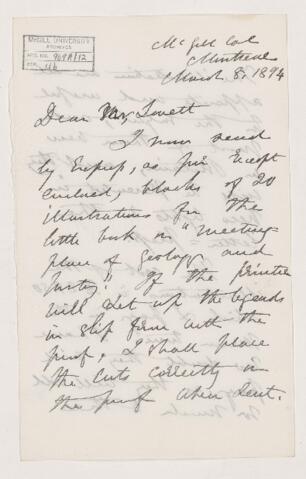 McGILL UNIVERSITY
ARCHIVES
ACC. NO. 969A/12
REF.
McGill Col
Montreal
March 8, 1894
Dear Mr Lovett
I now send
by Express, as per receipt
enclosed, blocks of 20
illustrations for the
little book on "meeting-
place of Geology and
History." If the printer
will set up the legends
in slip form with the
proof, I shall place
the cuts correctly in
the proof when sent.